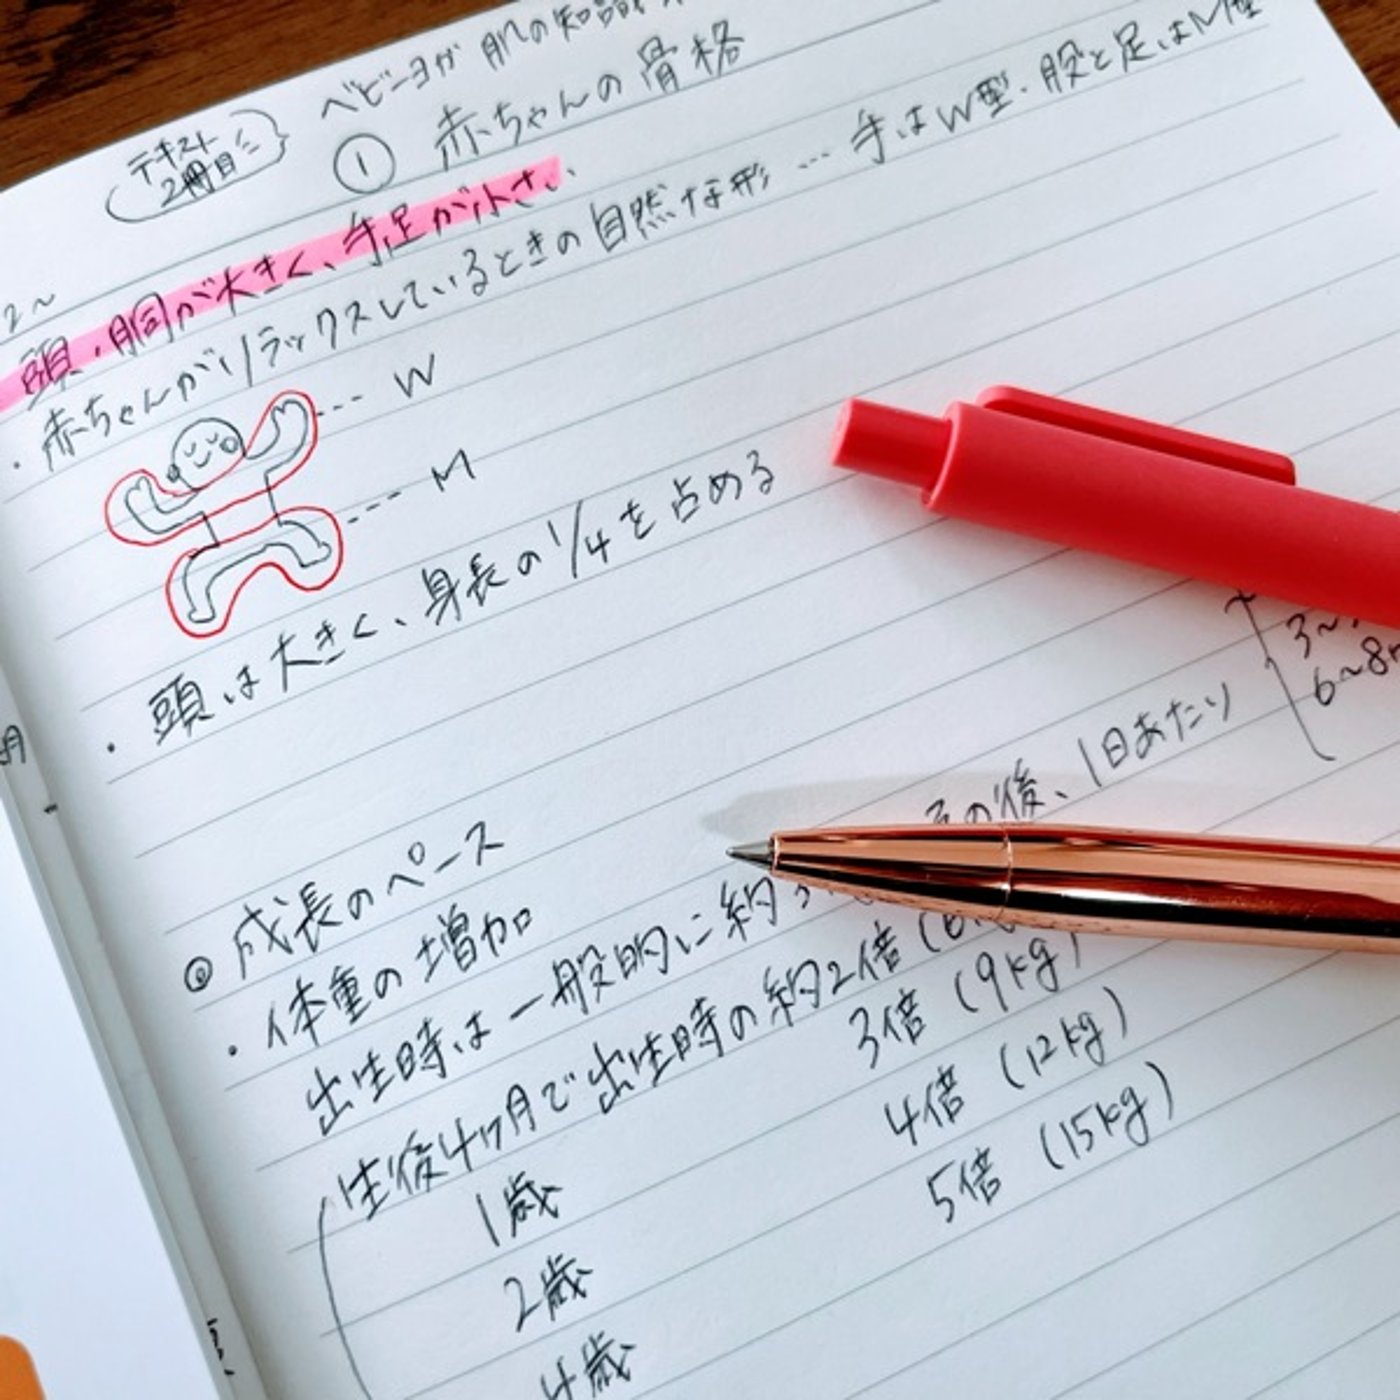 ベビーヨガ 肌の知識
テキスト
2冊目
① 赤ちゃんの骨格
2〜
頭・胴が大きく、手足が小さい
・赤ちゃんがリラックスしているときの自然な形 … 手はW型・股と足はM型
W
M
・頭は大きく、身長の1/4を占める
◎ 成長のペース
・体重の増加
出生時は一般的に約3
その後、1日あたり
3〜
6〜8
生後4ヶ月で出生時の約2倍
1歳 3倍 (9kg)
2歳 4倍 (12kg)
4歳 5倍 (15kg)
月